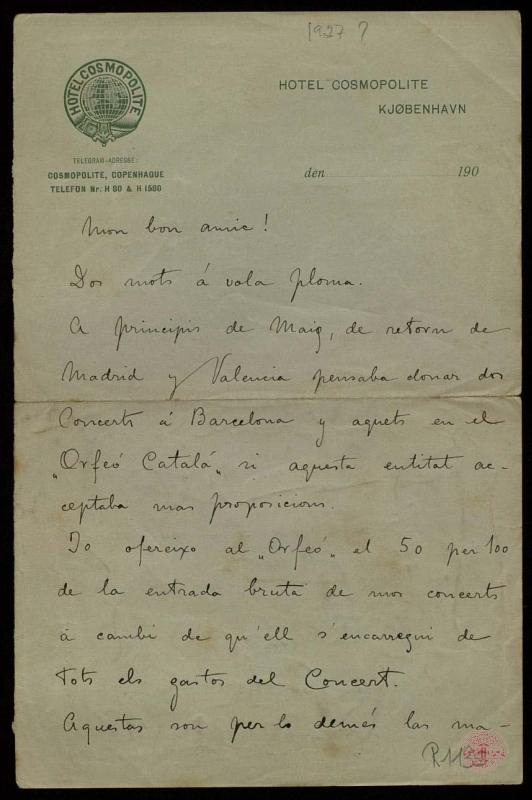 1927?
HOTEL COSMOPOLITE
HOTEL COSMOPOLITE
KJØBENHAVN
TELEGRAM-ADRESSE:
COSMOPOLITE, COPENHAGUE
TELEFON Nr. H 80 & H 1580
den 190
Mon bon amic!
Dos mots á vola ploma.
A principis de Maig, de retorn de
Madrid y Valencia pensaba donar dos
Concerts á Barcelona y aquets en el
„Orfeó Catalá„ si aquesta entitat ac-
ceptaba mas proposicions.
Jo ofereixo al „Orfeó„ el 50 per 100
de la entrada bruta de mos concerts
á cambi de qu'ell s'encarregui de
tots els gastos del Concert.
Aquestas son per lo demés las ma-